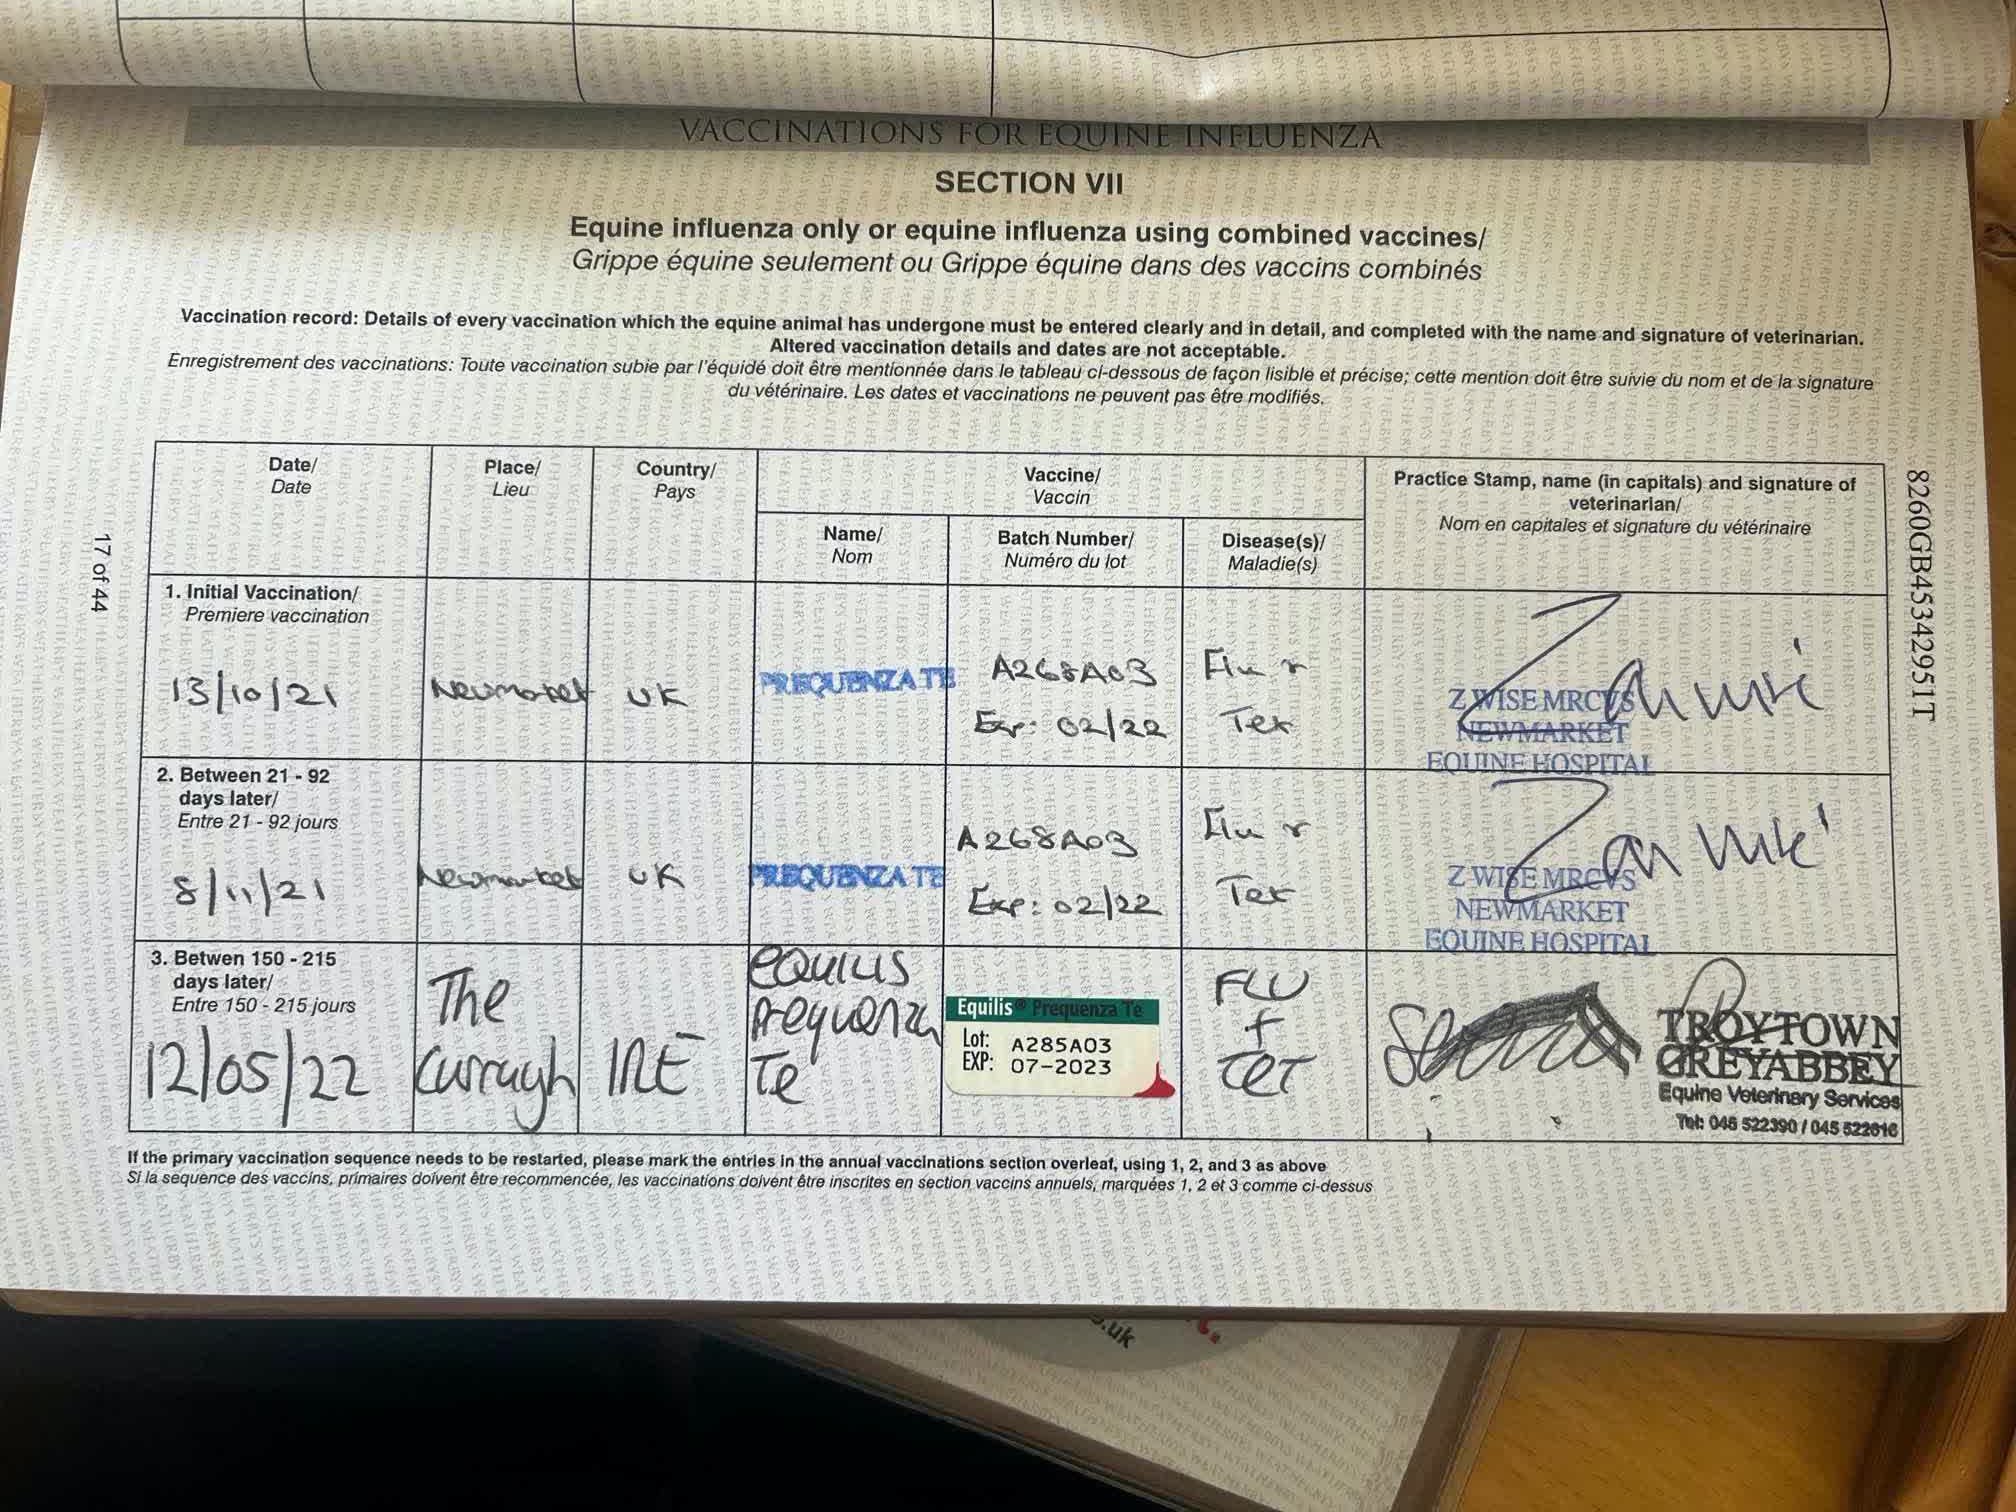 VACCINATIONS FOR EQUINE INFLUENZA
SECTION VII
Equine influenza only or equine influenza using combined vaccines/
Grippe équine seulement ou Grippe équine dans des vaccins combinés
Vaccination record: Details of every vaccination which the equine animal has undergone must be entered clearly and in detail, and completed with the name and signature of veterinarian.
Altered vaccination details and dates are not acceptable.
Enregistrement des vaccinations: Toute vaccination subie par l'équidé doit être mentionnée dans le tableau ci-dessous de façon lisible et précise; cette mention doit être suivie du nom et de la signature
du vétérinaire. Les dates et vaccinations ne peuvent pas être modifiés.
Date/
Date
Place/
Lieu
Country/
Pays
Vaccine/
Vaccin
Practice Stamp, name (in capitals) and signature of
veterinarian/
Nom en capitales et signature du vétérinaire
Name/
Nom
Batch Number/
Numéro du lot
Disease(s)/
Maladie(s)
1. Initial Vaccination/
Premiere vaccination
13/10/21
Newmarket
UK
PREQUENZA TE
A268A03
Exp: 02/22
Flu +
Tet
Z WISE MRCVS
NEWMARKET
EQUINE HOSPITAL
2. Between 21 - 92
days later/
Entre 21 - 92 jours
8/11/21
Newmarket
UK
PREQUENZA TE
A268A03
Exp: 02/22
Flu +
Tet
Z WISE MRCVS
NEWMARKET
EQUINE HOSPITAL
3. Betwen 150 - 215
days later/
Entre 150 - 215 jours
12/05/22
The
Curragh
IRE
EQUILIS
Prequenza
Te
Equilis® Prequenza Te
Lot: A285A03
EXP: 07-2023
FLU
+
TET
TROYTOWN
GREYABBEY
Equine Veterinary Services
Tel: 045 522390 / 045 522616
If the primary vaccination sequence needs to be restarted, please mark the entries in the annual vaccinations section overleaf, using 1, 2, and 3 as above
Si la sequence des vaccins, primaires doivent être recommencée, les vaccinations doivent être inscrites en section vaccins annuels, marquées 1, 2 et 3 comme ci-dessus
17 of 44
8260GB45342951T
.uk